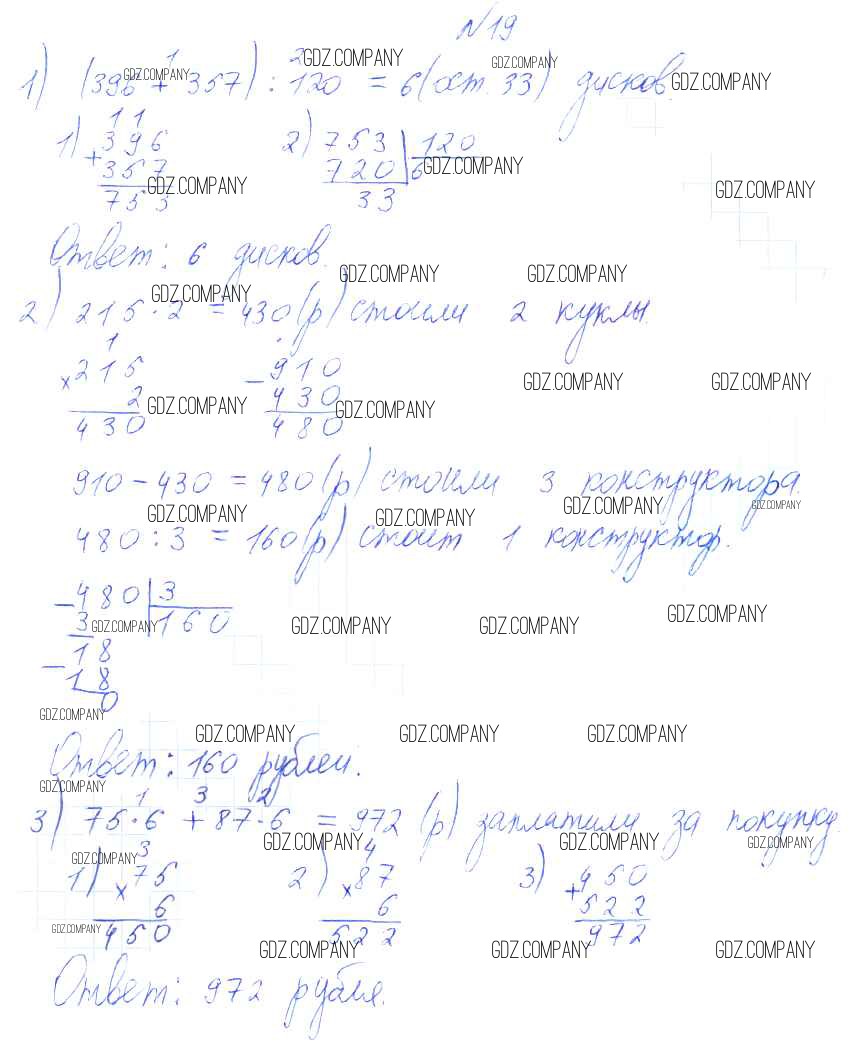 №19
1) (396 + 357) : 120 = 6 (ост. 33) дисков.
1 2
1) 396 + 357 = 753
11
2) 753 120
720 6
33
Ответ: 6 дисков.
2) 215 · 2 = 430 (р) стоили 2 куклы.
1
× 215 − 910
2 430
430 480
910 − 430 = 480 (р) стоили 3 конструктора.
480 : 3 = 160 (р) стоит 1 конструктор.
− 480 3
3 160
− 18
18
0
Ответ: 160 рублей.
1 3 2
3) 75 · 6 + 87 · 6 = 972 (р) заплатили за покупку.
3 4
1) × 75 2) × 87 3) + 450
6 6 522
450 522 972
Ответ: 972 рубля.
GDZ.COMPANY